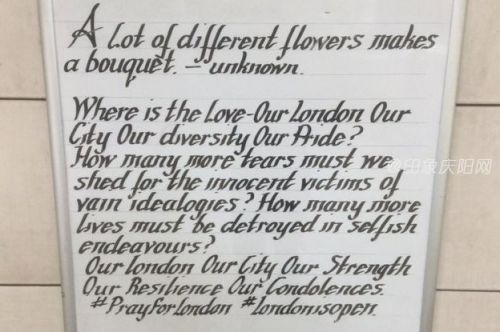 A Lot of different flowers makes
a bouquet. – unknown.
Where is the Love-Our London Our
City Our diversity Our Pride?
How many more tears must we
shed for the innocent victims of
vain idealogies? How many more
lives must be detroyed in selfish
endeavours?
Our London Our City Our Strength
Our Resilience Our Condolences.
#PrayforLondon #londonisopen.
@印象庆阳网